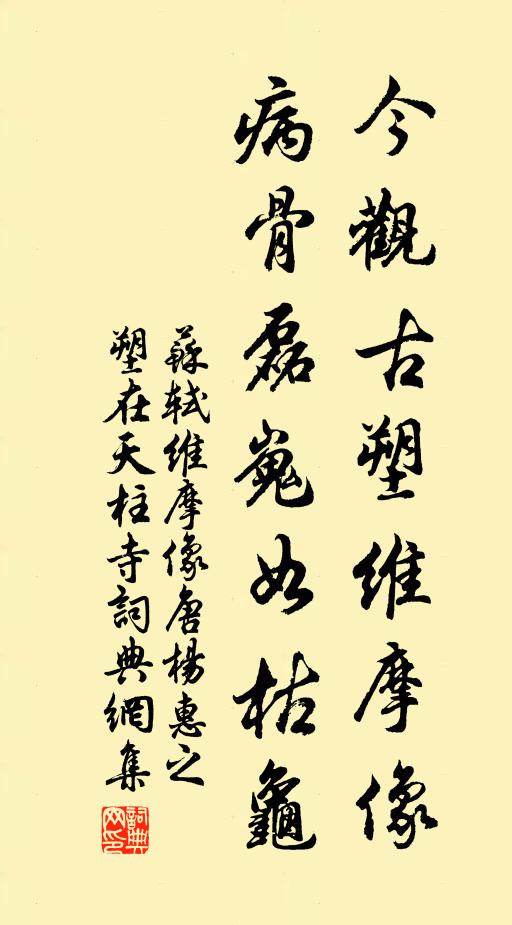 今觀古塑維摩像
病骨磊嵬如枯龜
蘇軾維摩像唐楊惠之
塑在天柱寺詞典網集
詞典網印